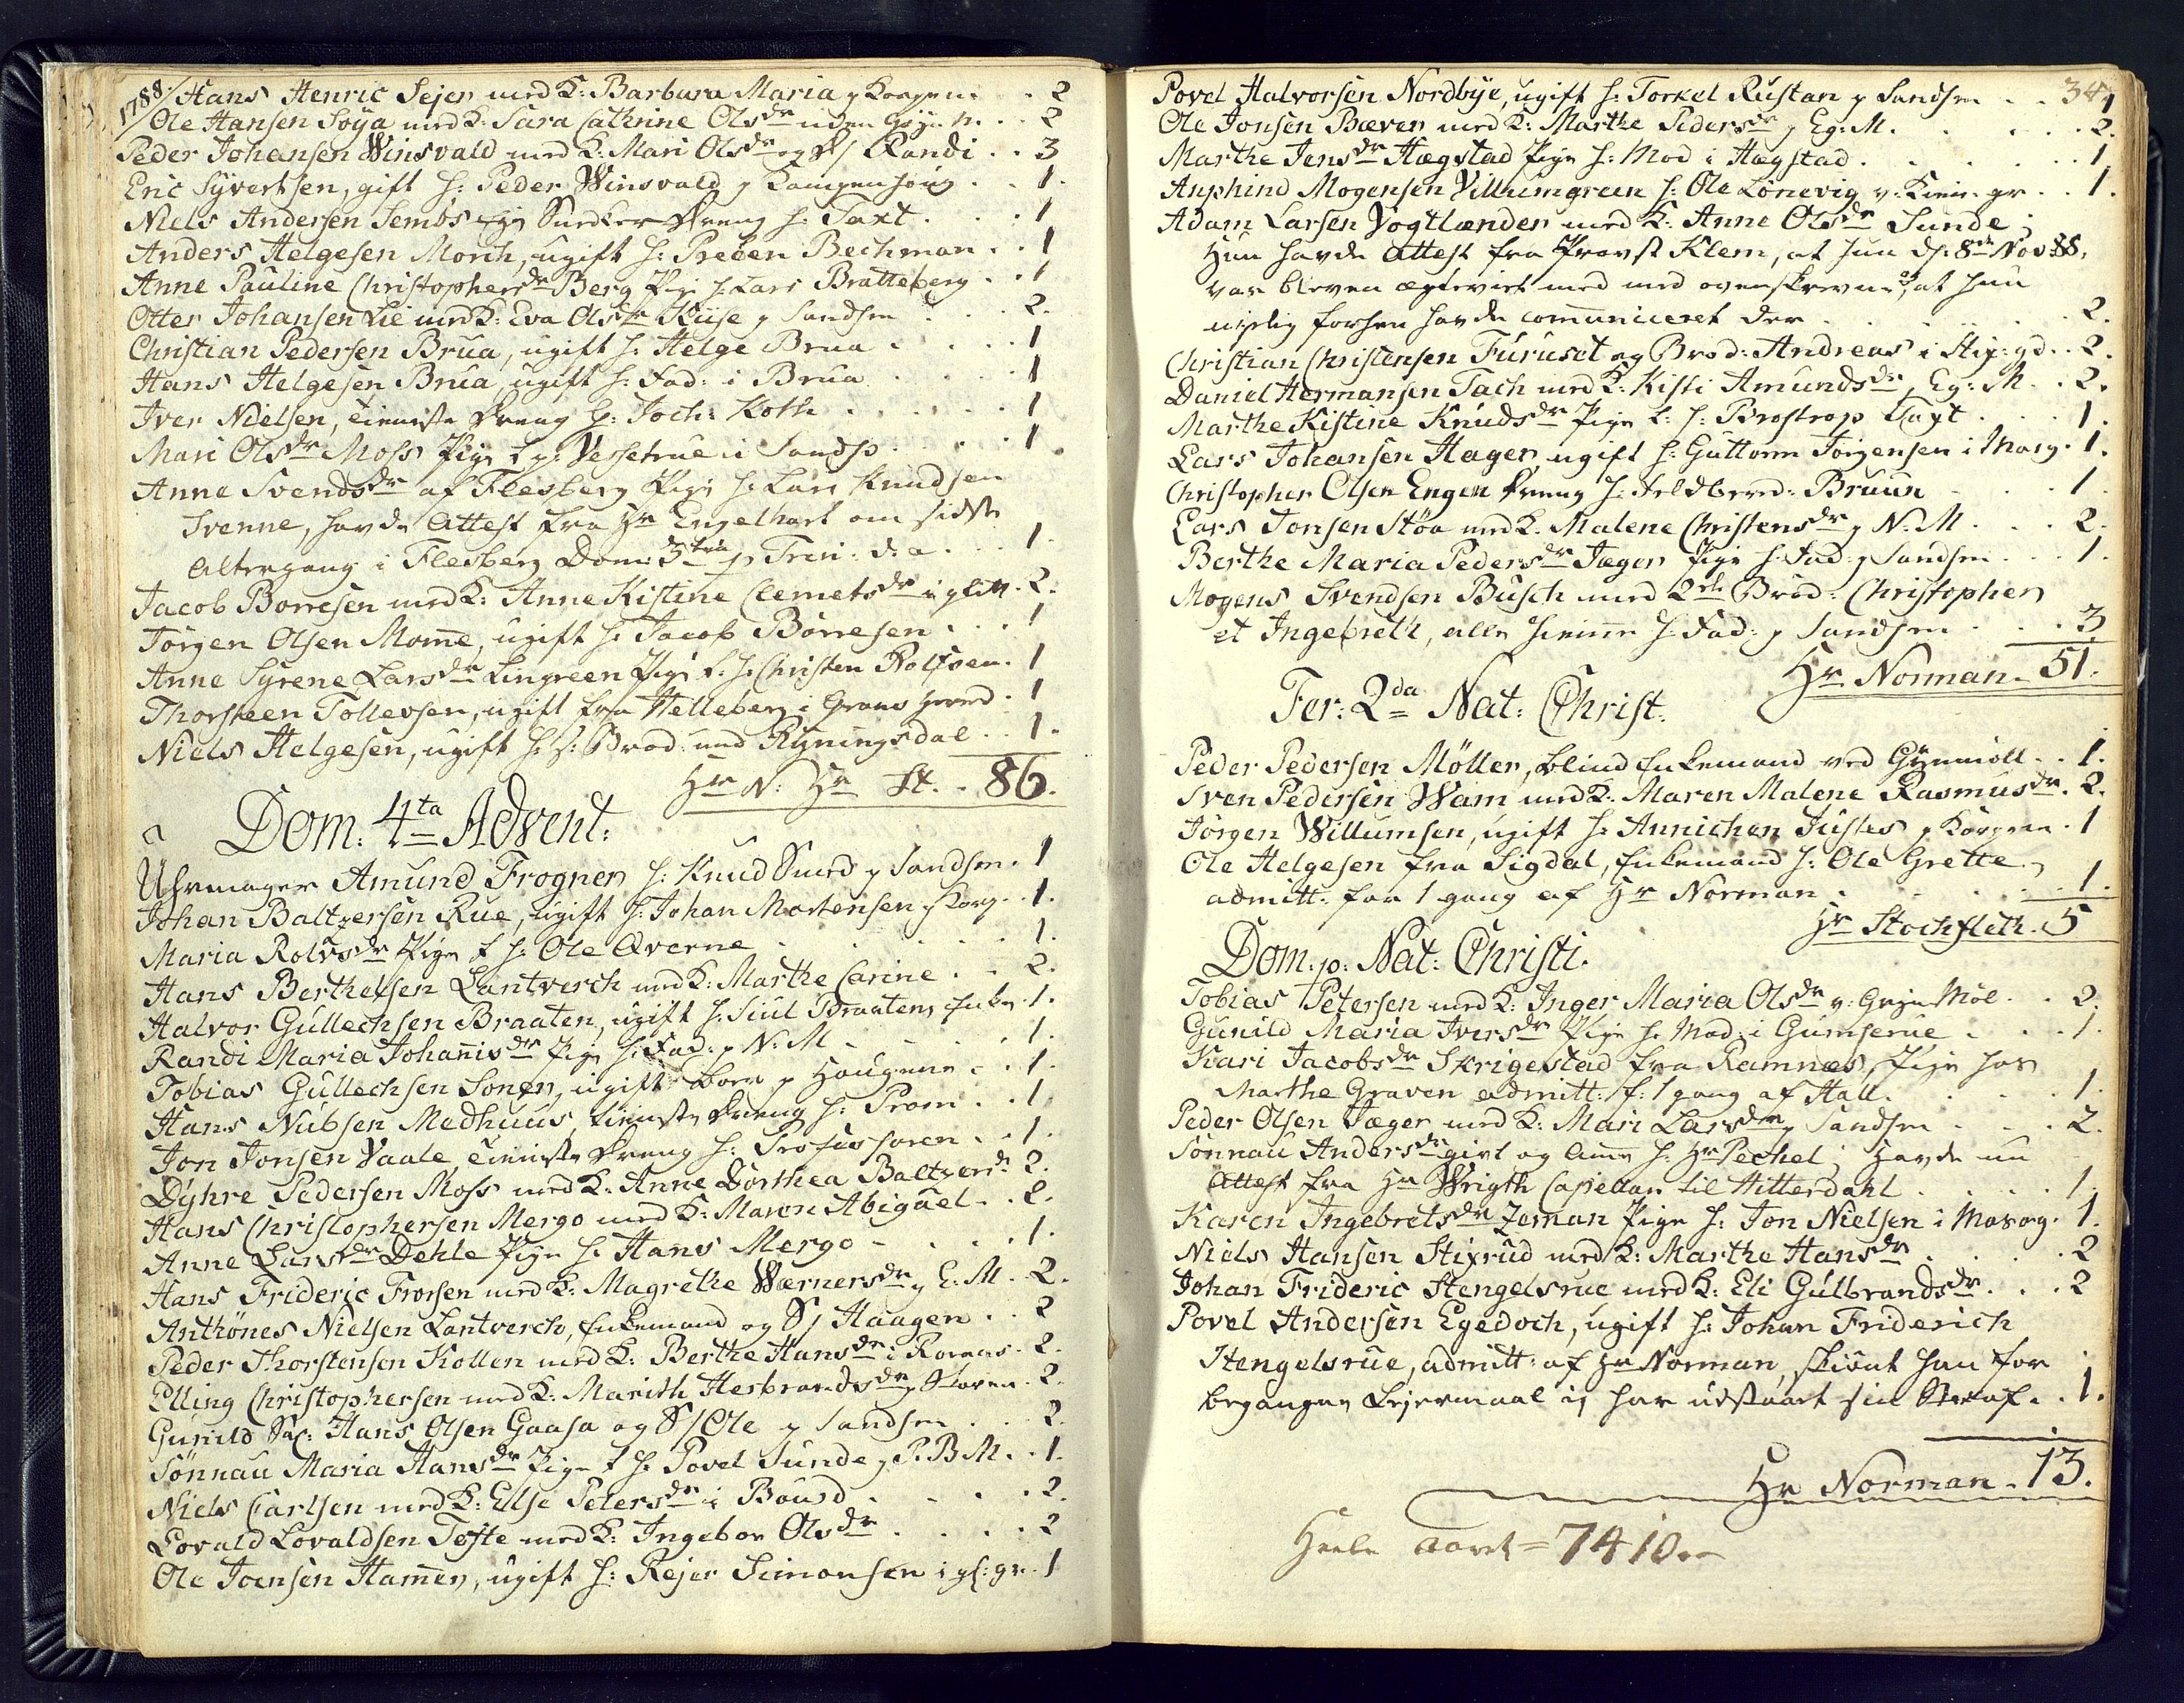 1788.
Hans Henric Sejer med K: Barbara Maria p Korpene . 2
Ole Hansen Söya med K: Sara Cathrine Olsdr uden . . 2
Peder Johansen Winsvald med K: Mari Olsdr og S/ Randi . . 3
Eric Syvertsen, gift h: Peder Winsvald p . . 1.
Niels Andersen Sembs Snedker Dreng h: Taxt . . . 1
Anders Helgesen Morch, ugift h: Preben Bechman . . 1
Anne Pauline Christophersdr Berg Pige h: Lars Bratteberg . . 1
Otter Johansen Lie med K: Eva Olsdr Kiise p Sandsm . . . 2.
Christian Pedersen Brua, ugift h: Helge Brua . . . . 1
Hans Helgesen Brua, ugift h: Fad: i Brua . . . . 1
Iver Nielsen, tieniste Dreng h: Joch: Koth . . . . . 1
Mari Olsdr Moss Pige f p: Vessetrue i Sandsv . . . . 1.
Anne Svendsdr af Flesberg Pige h: Lars Knudsen
Svenne, havde Attest fra Hr Engelhart om sidste
Altergang i Flesberg Dom: 3tia p Trin: d: a . . . 1.
Jacob Borresen med K: Anne Kistine Clemetsdr i gl: M. 2.
Jörgen Olsen Mome, ugift h: Jacob Börresen . . . 1
Anne Syrene Larsdr Lingreen Pige f. h: Christen Rolfsen. 1
Thorsteen Tollevsen, ugift fra Helleberg i Grans . 1
Niels Helgesen, ugift h: s: Brod: med Ryningsdal . . 1.
Hr N: Hr St. . 86.
Dom: 4ta Advent:
Uhrmager Amund Frogner h: Knud Smed p Sandsm. 1
Johan Baltzersen Rue, ugift h: Johan Mortensen p Korp. . 1.
Maria Rolvsdr Pige f h: Ole Qverne . . . . . 1.
Hans Berthelsen Lantverch med K: Marthe Carine . . 2.
Halvor Gullechsen Braaten, ugift h: Siul Braatens Enke. 1.
Randi Maria Johannisdr Pige h: Fad: p N: M . . . . 1.
Tobias Gullechsen Sonen, ugift boer p Haugene . . 1.
Hans Nubsen Medhuus, tieniste Dreng h: Prom . . 1.
Jon Jonsen Vaale, tieniste Dreng h: Professoren . . 1.
Dyhre Pedersen Moss med K: Anne Dorthea Baltzerdr 2.
Hans Christophersen Mergo med K: Maren Abigael . . 2.
Anne Larsdr Dehle Pige h: Hans Mergo . . . . 1.
Hans Frideric Frorsen med K: Magrethe Wærnersdr p E: M. 2.
Anthönes Nielsen Lantverch, Enkemand og S/ Haagen . . 2
Peder Thorstensen Kollen med K: Berthe Hansdr i . 2.
Elling Christophersen med K: Marith Herbrandsdr p . 2.
Gunild Sal: Hans Olsen Gaasa og S/ Ole p Sandsm . . 2.
Sönnau Maria Hansdr Pige f h: Povel Sunde p P. B M. . 1.
Niels Carlsen med K: Else Petersdr i Bourd . . . . 2.
Lovald Lovaldsen Tofte med K: Ingebor Olsdr . . . . 2
Ole Joensen Hammer, ugift h: Rejer Simonsen i gl: gr. 1
34
Povel Halvorsen Nordbye, ugift h: Torkel Rustan p Sandsm . . 1
Ole Jonsen Bæver med K: Marthe Pedersdr p Eg: M. . . . 2.
Marthe Jensdr Hægstad Pige h: Mod i Hægstad . . . . . 1
Anphind Mogensen Villumgreen h: Ole Lönevig v: gr . . 1.
Adam Larsen Vogtlænder med K: Anne Olsdr Sunde;
Hun havde Attest fra Provst Klem, at hun d: 8de Nov 88,
var bleven ægteviet med med ovenskrevne, at hun
forhen havde communiceret der . . . . . 2.
Christian Christensen Furuset og Brod: Andreas i . . 2.
Daniel Hermansen Tach med K: Kisti Amundsdr p Eg: M. . 2.
Marthe Kistine Knudsdr Pige f: h: Brostrop Taxt . . . 1.
Lars Johansen Hager ugift h: Guttorm Jörgensen i Marg. 1.
Christopher Olsen Engen Dreng h: Feldbered: Bruun . . . 1.
Lars Jonsen Stöa med K: Malene Christensdr p N: M. . . 2.
Berthe Maria Pedersdr Jæger Pige h: Fad: p Sandsm . . . 1.
Mogens Svendsen Busch med 2de Bröd: Christopher
et Ingebreth, alle hieme h: Fad: p Sandsm . . . 3
Hr Norman . 51.
Fer: 2da Nat: Christ:
Peder Pedersen Möller, blind Enkemand ved Grynmöll . . 1.
Sven Pedersen Wam med K: Maren Malene Rasmusdr. 2.
Jörgen Willumsen, ugift h: Annichen Justes p Korpene . 1
Ole Helgesen fra Sigdal, Enkemand h: Ole Grette,
admitt: for 1 gang af Hr Norman . . . . . 1.
Hr Stochfleth . 5
Dom: p: Nat: Christi.
Tobias Petersen med K: Inger Maria Olsdr v: Gryn Möl . . 2.
Gunild Maria Iversdr Pige h: Mod: i Gumserue . . . 1.
Kari Jacobsdr Skrigestad fra Ramnæs, Pige hos
Marthe Graven admitt: f: 1 gang af Hall . . . . 1.
Peder Olsen Jæger med K: Mari Larsdr p Sandsm . . . 2.
Sönnau Andersdr givt og Amme h: Hr Pechel; Havde en
Attest fra Hr Wrigth Capellan til Hitterdahl . . . . 1.
Karen Ingebretsdr Zeman Pige h: Jon Nielsen i Marg. 1.
Niels Hansen Stixrud med K: Marthe Hansdr . . . . 2
Johan Frideric Stengelsrue med K: Eli Gulbrandsdr . . . 2
Povel Andersen Egedoch, ugift h: Johan Friderich
Stengelsrue, admitt: af Hr Norman, skiönt han for
begangen Lejermaal ej har udstaaet sin Straf . . 1.
Hr Norman . 13.
Heele Aaret = 7410